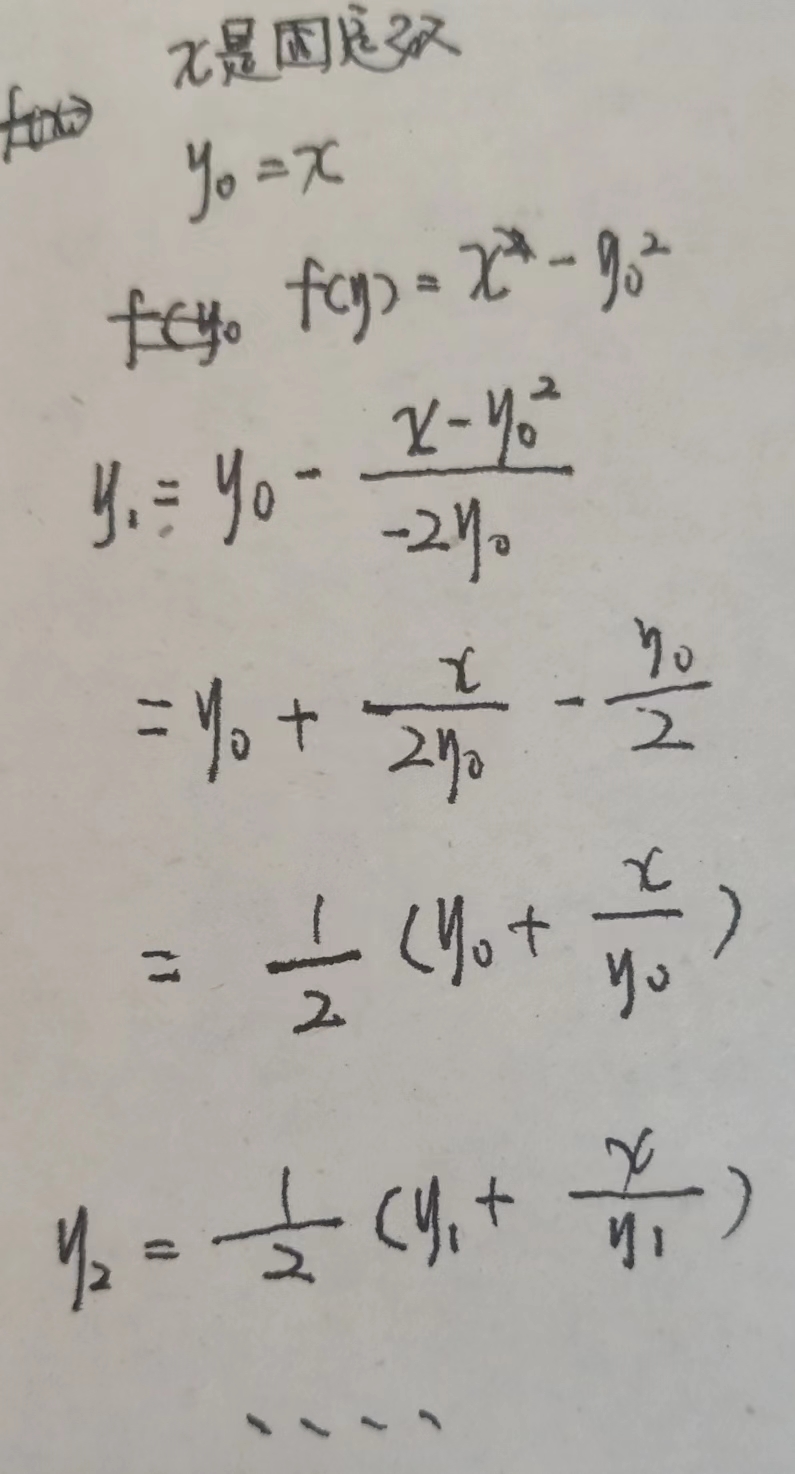 x是固定数
f(x)
y₀ = x
f(y₀ f(y) = x - y₀²
y₁ = y₀ - (x - y₀²)/(-2y₀)
= y₀ + x/(2y₀) - y₀/2
= 1/2 (y₀ + x/y₀)
y₂ = 1/2 (y₁ + x/y₁)
....